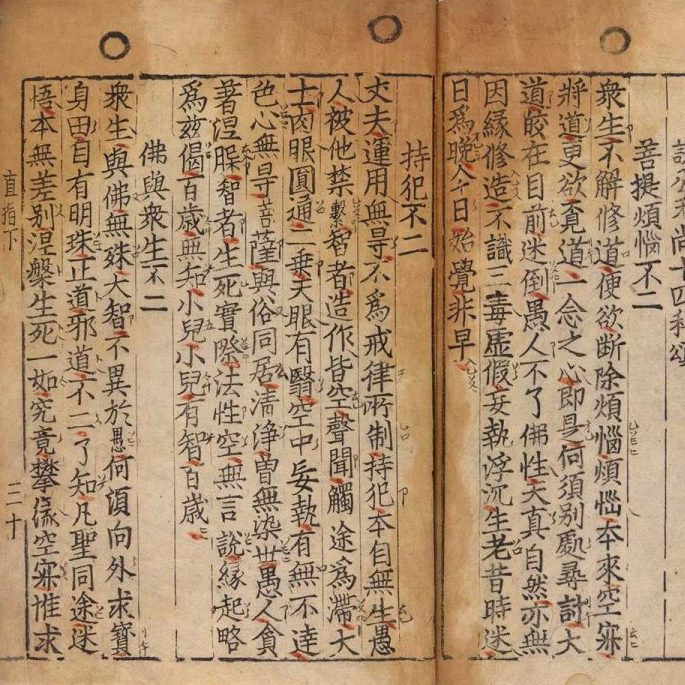 誌公和尚十四科頌
菩提煩惱不二
衆生不解修道便欲斷除煩惱煩惱本來空寂
將道更欲覓道一念之心即是何須別處尋討大
道皎在目前迷倒愚人不了佛性天真自然亦無
因緣修造不識三毒虛假妄執浮沉生老昔時迷
日爲晚今日始覺非早
持犯不二
丈夫運用無㝵不爲戒律所制持犯本自無生愚
人被他禁繫智者造作皆空聲聞觸途爲滯大
士肉眼圓通二乘天眼有翳空中妄執有無不達
色心無㝵菩薩與俗同居清淨曾無染世愚人貪
著涅槃智者生死實際法性空無言說緣起略
爲兹偈百歲無知小兒小兒有智百歲
佛與衆生不二
衆生與佛無殊大智不異於愚何須向外求寶
身田自有明珠正道邪道不二了知凡聖同途迷
悟本無差別涅槃生死一如究竟攀緣空寂惟求
直指下 三十